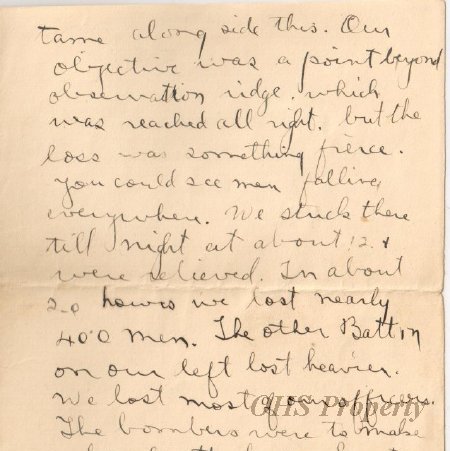 tame along side this. Our
objective was a point beyond
observation ridge. which
was reached all right. but the
loss was something fierce.
You could see men falling
everywhere. We stuck there
till night at about 12. &
were relieved. In about
20 hours we lost nearly
400 men. The other Battin
on our left lost heavier.
We lost most of our officers.
OHS Property
The bombers were to make